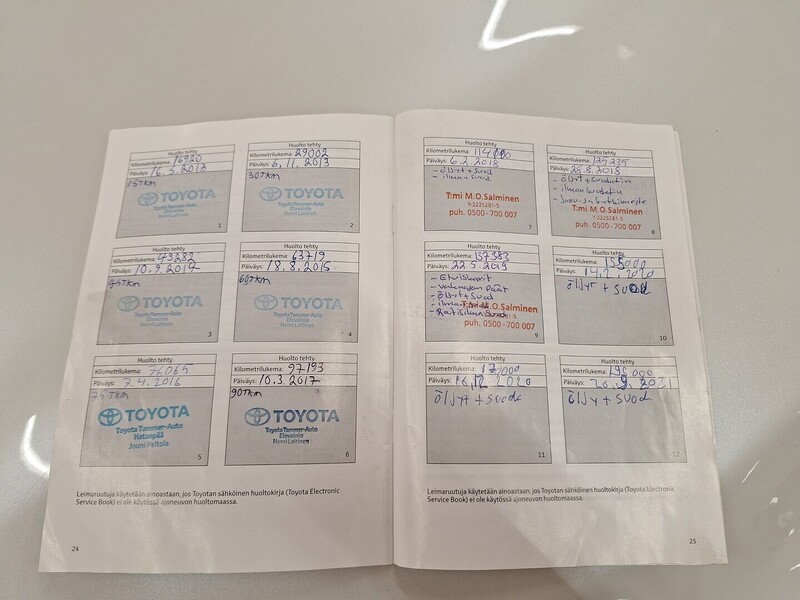 Huolto tehty
Kilometrilukema: 16920
Päiväys: 16.5.2013
15TKM
TOYOTA
Toyota Tammer-Auto
Elovainio
Henri Laitinen
1
Huolto tehty
Kilometrilukema: 29002
Päiväys: 6.11.2013
30TKM
TOYOTA
Toyota Tammer-Auto
Elovainio
Henri Laitinen
2
Huolto tehty
Kilometrilukema: 43282
Päiväys: 10.9.2014
45TKM
TOYOTA
Toyota Tammer-Auto
Elovainio
Henri Laitinen
3
Huolto tehty
Kilometrilukema: 63719
Päiväys: 18.8.2015
60TKM
TOYOTA
Toyota Tammer-Auto
Elovainio
Henri Laitinen
4
Huolto tehty
Kilometrilukema: 76065
Päiväys: 7.4.2016
75TKM
TOYOTA
Toyota Tammer-Auto
Hatanpää
Jouni Peltola
5
Huolto tehty
Kilometrilukema: 97193
Päiväys: 10.3.2017
90TKM
TOYOTA
Toyota Tammer-Auto
Elovainio
Henri Laitinen
6
Leimaruutuja käytetään ainoastaan, jos Toyotan sähköinen huoltokirja (Toyota Electronic
Service Book) ei ole käytössä ajoneuvon huoltomaassa.
24
Huolto tehty
Kilometrilukema:
Päiväys: 6.2.2018
- öljyt + suod
- ilman suod
T:mi M.O.Salminen
Y-2225281-5
puh. 0500-700 007
7
Huolto tehty
Kilometrilukema:
Päiväys: 28.8.2018
- öljyt + suodatin
- ilman suodatin
T:mi M.O.Salminen
Y-2225281-5
puh. 0500-700 007
8
Huolto tehty
Kilometrilukema: 137383
Päiväys: 22.5.2019
- öljyt + suod
T:mi M.O.Salminen
puh. 0500-700 007
9
Huolto tehty
Kilometrilukema: 155000
Päiväys: 14.2.2020
öljyt + suod
10
Huolto tehty
Kilometrilukema:
Päiväys: 16.12.2020
öljyt + suod
11
Huolto tehty
Kilometrilukema: 195000
Päiväys: 20.9.2021
öljy + suod
12
Leimaruutuja käytetään ainoastaan, jos Toyotan sähköinen huoltokirja (Toyota Electronic
Service Book) ei ole käytössä ajoneuvon huoltomaassa.
25